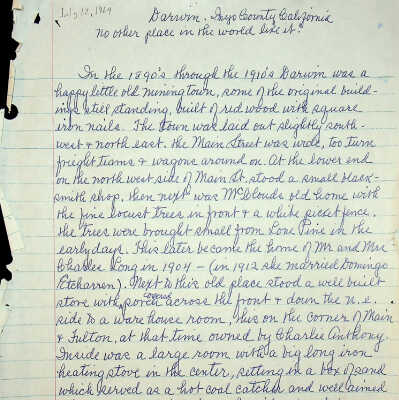 July 12, 1969
Darwin. Inyo County California
No other place in the world like it!
In the 1890's through the 1910's Darwin was a
happy little old mining town, some of the original build-
ings still standing, built of red wood with square
iron nails. The town was laid out slightly south-
west & north east. the Main Street was wide, too turn
freight teams & wagons around on. At the lower end
on the north west side of Main St. stood a small black-
smith shop, then next was McClouds old home with
the fine locust trees in front & a white picket fence.
the trees were brought small from Lone Pine in the
early days. This later became the home of Mr and Mrs
Charles Long in 1904 - (in 1912 she married Domingo
Etcharren). Next to this old place stood a well built
store with covered porch across the front & down the n. e.
side to a ware house room, this on the corner of Main
& Fulton, at that time owned by Charlie Anthony.
Inside was a large room with a big long iron
heating stove in the center, setting in a box of sand
which served as a hot coal catcher and well aimed